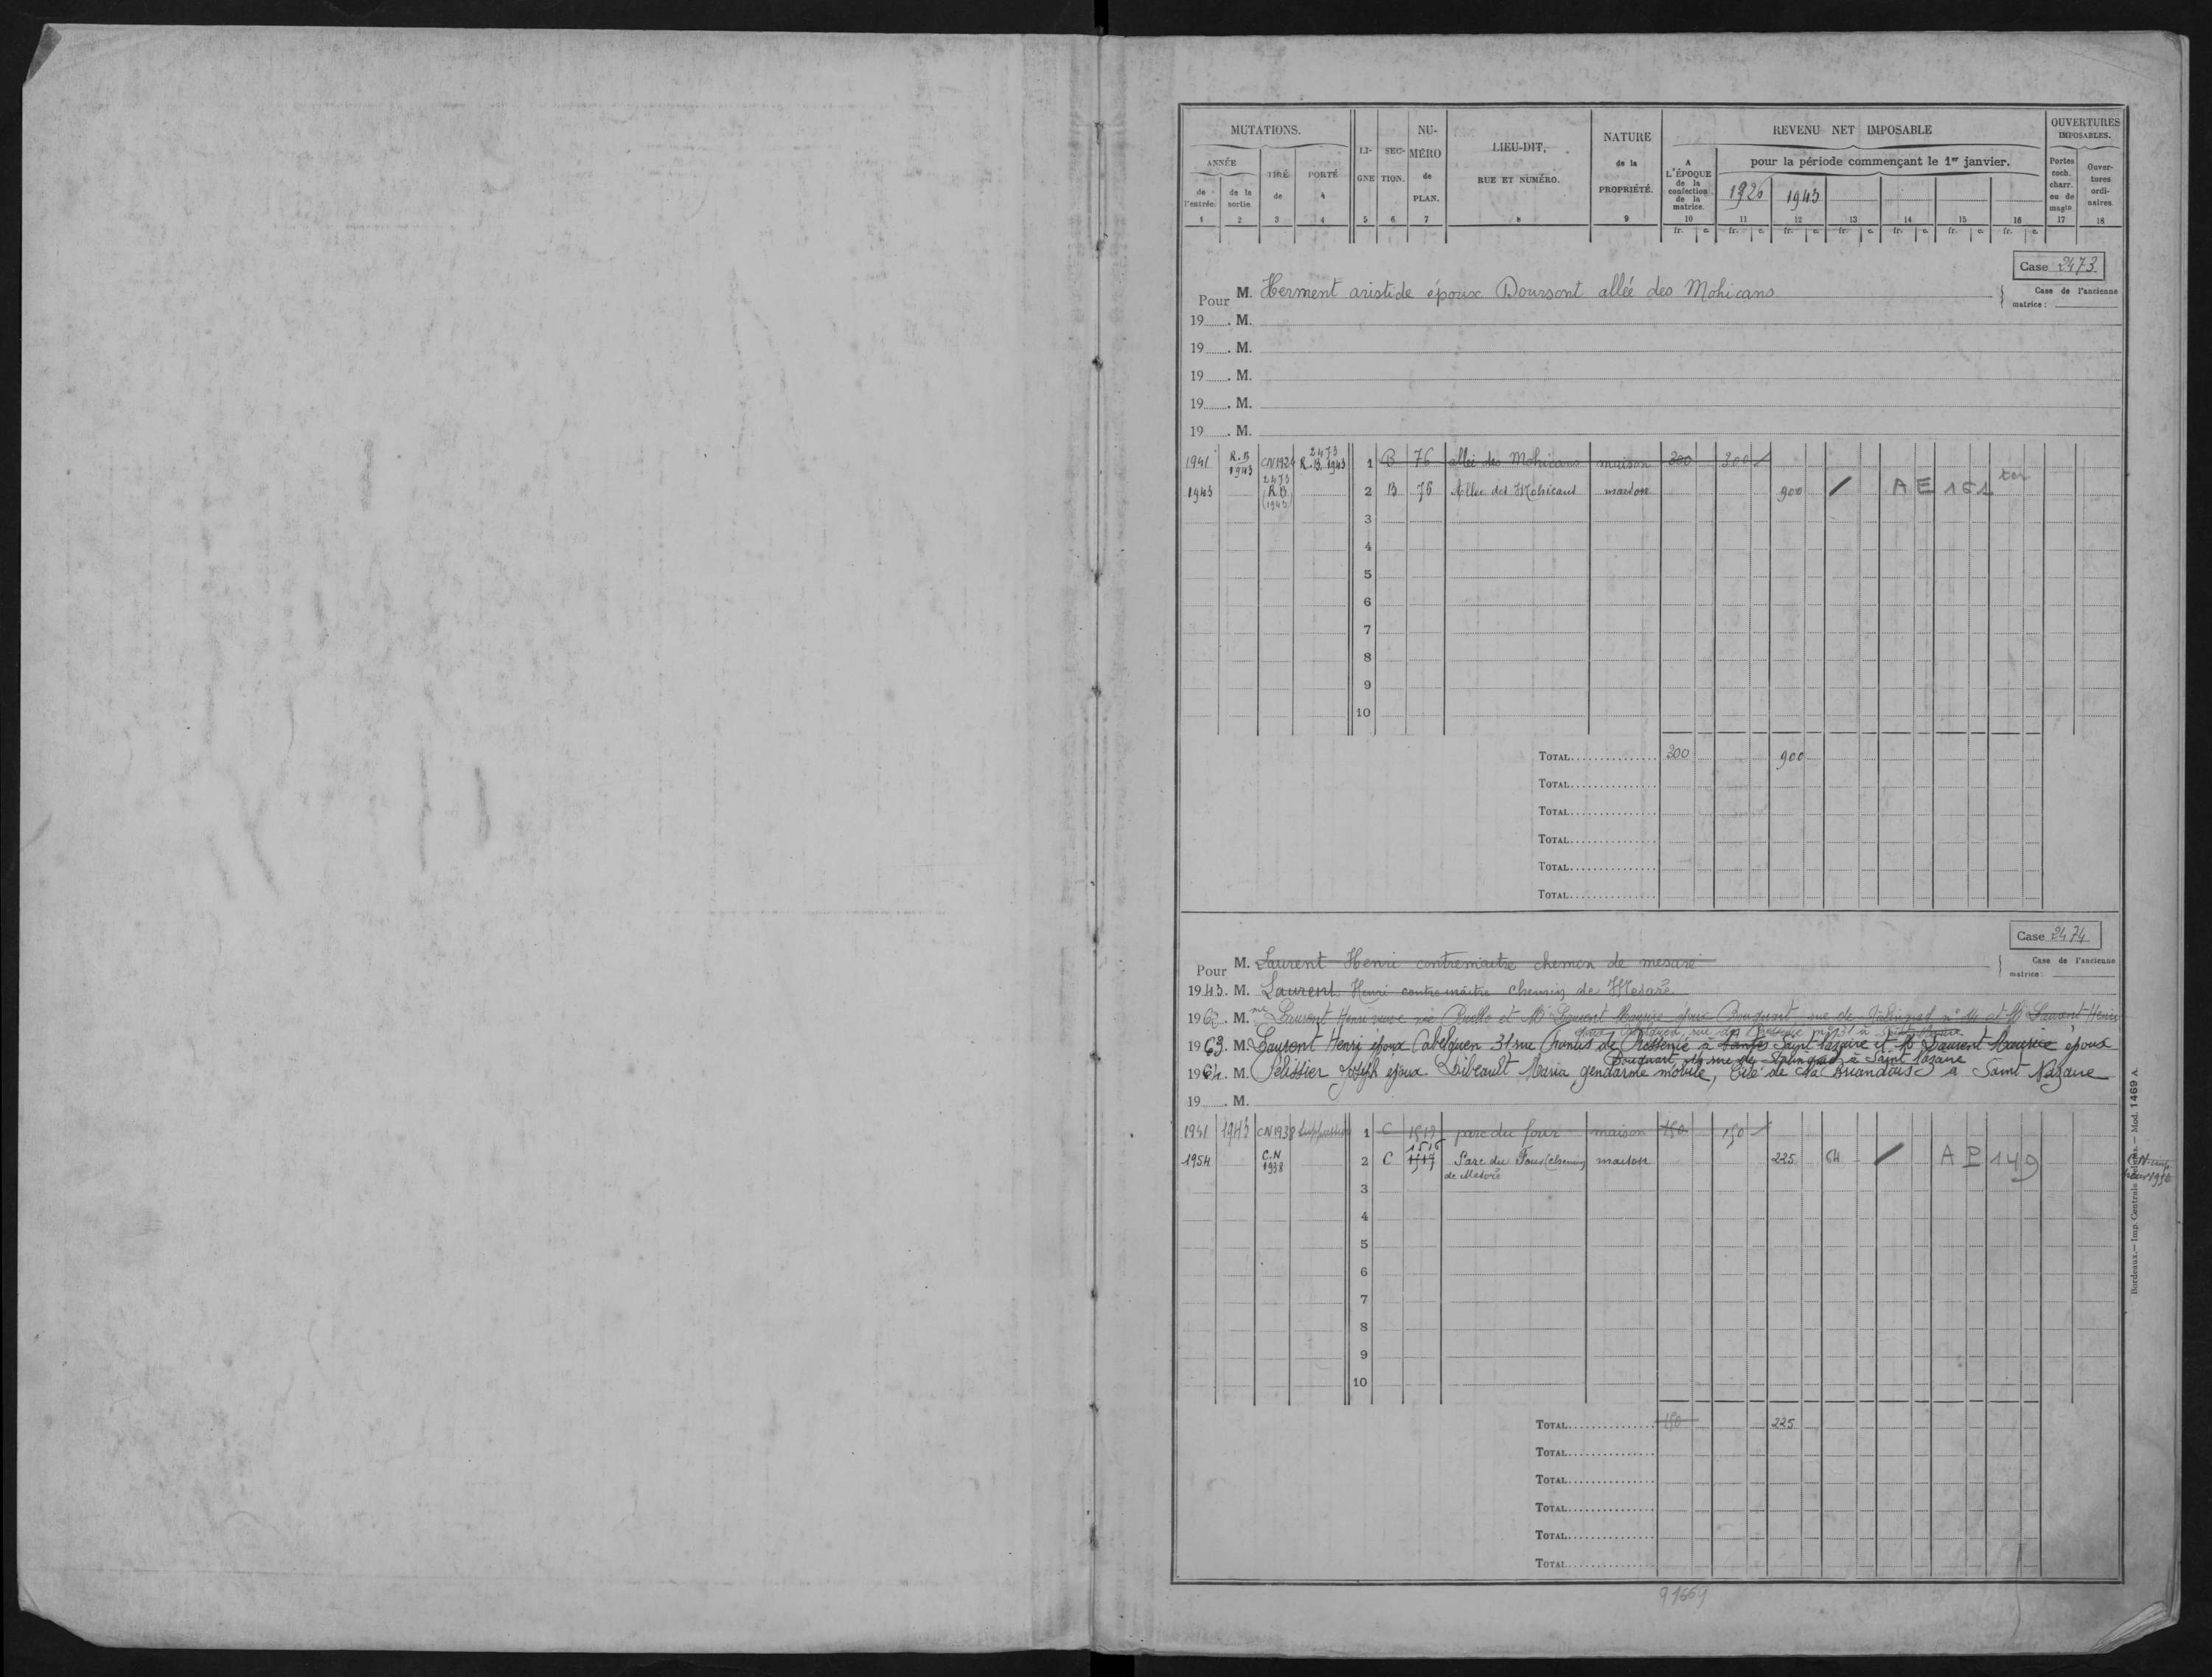 MUTATIONS.
ANNÉE
de l'entrée.
de la sortie.
TIRÉ de
PORTÉ à
LIGNE
SECTION.
NUMÉRO de PLAN.
LIEU-DIT, RUE ET NUMÉRO.
NATURE de la PROPRIÉTÉ.
REVENU NET IMPOSABLE
A L'ÉPOQUE de la confection de la matrice.
pour la période commençant le 1er janvier.
1926 1943
OUVERTURES IMPOSABLES.
Portes coch. charr. ou de magin
Ouvertures ordinaires
1 2 3 4 5 6 7 8 9 10 11 12 13 14 15 16 17 18
fr. c. fr. c. fr. c. fr. c. fr. c. fr. c. fr. c.
Case 2473
Pour M. Herment aristide époux Doursont allée des Mohicans
Case de l'ancienne matrice :
19 . M.
19 . M.
19 . M.
19 . M.
19 . M.
1941 R.B 1943 CN1924 2473 R.B. 1943 1 B 76 allée des Mohicans maison 300 300
1943 2473 R B (1943) 2 B 76 Allée des Mohicans maison 900 / A E 161 ter
3
4
5
6
7
8
9
10
TOTAL 300 900
TOTAL
TOTAL
TOTAL
TOTAL
TOTAL
Case 2474
Pour M. Laurent Henri contremaitre chemin de mesaré
Case de l'ancienne matrice :
1943. M. Laurent Henri contremaître chemin de Mesaré
1962. M. me Laurent Henri veuve née et Mr Laurent Maurice époux Bouquart rue de n° 14 et Mr Laurent Henri
époux Cabelguen, rue de n° 31 à Saint Nazaire
1963. M. Laurent Henri époux Cabelguen 31 rue de à Nantes Saint Nazaire et M Laurent Maurice époux
Bouquart 14 rue de à Saint Nazaire
1964. M. Pelissier Joseph époux Dibeault Maria gendarme mobile, Cité de la Briandais à Saint Nazaire
19 . M.
1941 1943 CN1938 Suppression 1 C 1517 parc du four maison 150 150
1954 C.N 1938 2 C 1517 1516 Parc du Four (chemin de Mesaré maison 225 64 / A P 149
3
4
5
6
7
8
9
10
TOTAL 150 225
TOTAL
TOTAL
TOTAL
TOTAL
TOTAL
Bordeaux. — Imp. Centrale — Mod. 1469 A.
91669